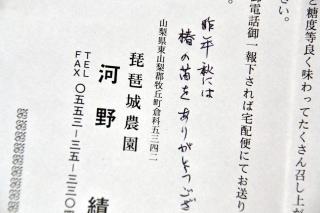 と糖度等良く味わってたくさん召し上が
さい。
御電話御一報下されば宅配便にてお送り
昨年秋には
椿の苗をありがとうござ
山梨県東山梨郡牧丘町倉科五三四二
琵琶城農園
河野 績
TEL
FAX 〇五五三-三五-三三〇